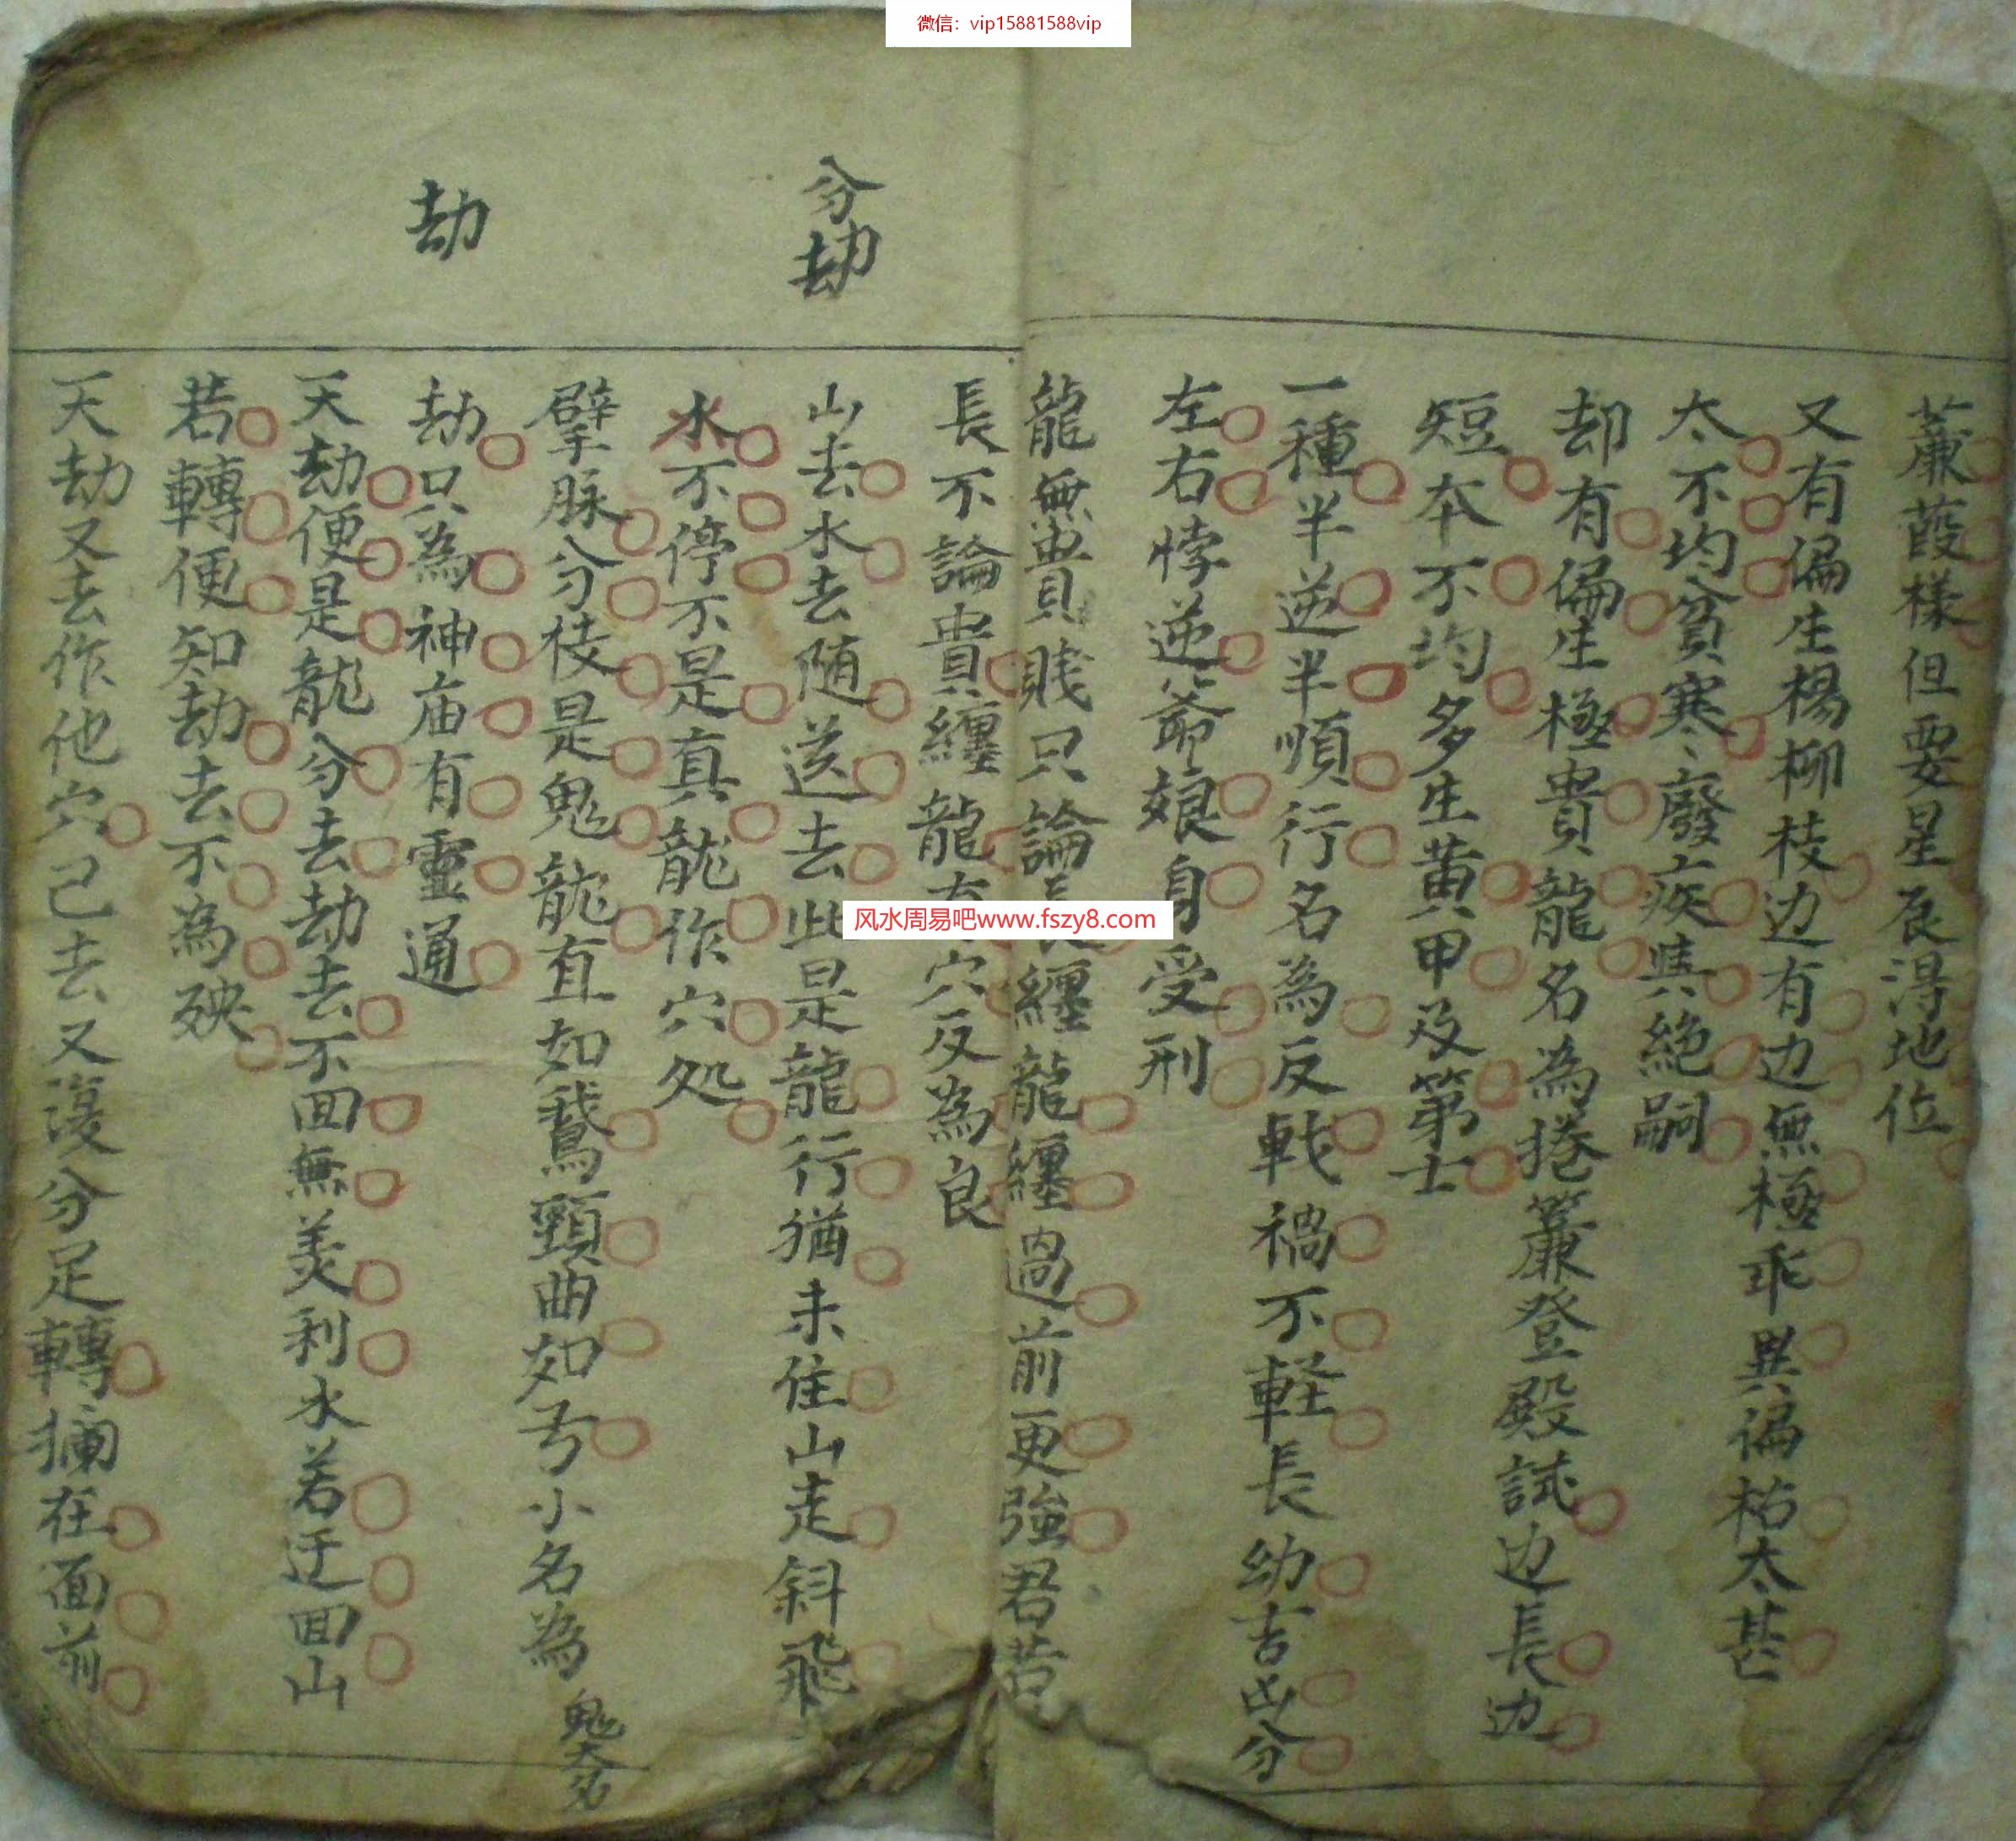 微信：vip15881588vip
蒹葭樣但要星辰淂地位
又有偏生楊柳枝边有边無極乖異偏枯太甚
太不均貧寒廢疾與絶嗣
却有偏生極貴龍名為捲簾登殿試边長边
短本不均多生黄甲及第士
一種半逆半順行名為反戟禍不軽長幼吉凶分
左右悖逆爺娘身受刑
龍無貴賤只論長纒龍纒過前更強君若
長不論貴纒龍有穴反為良
分劫
山去水去随送去此是龍行猶未住山走斜飛
水不停不是真龍作穴処
擘脉分枝是鬼龍直如鵞頸曲如弓小名為鬼大名
劫
劫只為神庙有靈通
天劫便是龍分去劫去不回無美利水若迂回山
若轉便知劫去不為殃
天劫又去作他穴己去又復分足轉攔在面前
风水周易吧www.fszy8.com